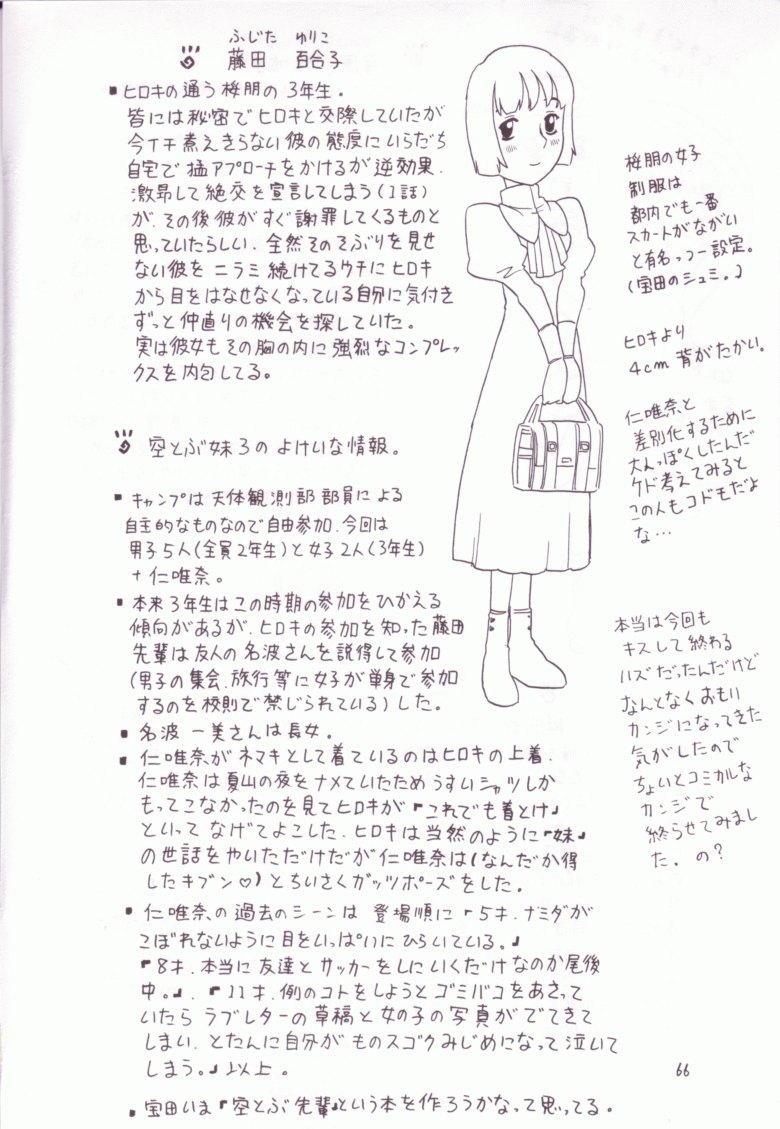 ふじた ゆりこ
藤田 百合子
■ヒロキの通う桜朋の3年生。
皆には秘密でヒロキと交際していたが
今イチ煮えきらない彼の態度にいらだち
自宅で猛アプローチをかけるが逆効果.
激昂して絶交を宣言してしまう(1話)
が、その後彼がすぐ謝罪してくるものと
思っていたらしい. 全然そのそぶりを見せ
ない彼をニラミ続けてるウチにヒロキ
から目をはなせなくなっている自分に気付き
ずっと仲直りの機会を探していた。
実は彼女もその胸の内に強烈なコンプレッ
クスを内包してる。
空とぶ妹3のよけいな情報。
■キャンプは天体観測部部員による
自主的なものなので自由参加.今回は
男子5人(全員2年生)と女子2人(3年生)
+仁唯奈。
■本来3年生はこの時期の参加をひかえる
傾向があるが、ヒロキの参加を知った藤田
先輩は友人の名波さんを説得して参加
(男子の集会、旅行等に女子が単身で参加
するのを校則で禁じられている)した。
■名波一美さんは長女。
■仁唯奈がネマキとして着ているのはヒロキの上着.
仁唯奈は夏山の夜をナメていたためうすいシャツしか
もってこなかったのを見てヒロキが『これでも着とけ』
といってなげてよこした. ヒロキは当然のように『妹』
の世話をやいただけだが仁唯奈は(なんだか得
したキブン♡)とちいさくガッツポーズをした。
■仁唯奈の過去のシーンは 登場順に『5才.ナミダが
こぼれないように目をいっぱいにひらいている。』
『8才.本当に友達とサッカーをしにいくだけなのか尾後
中。』.『11才.例のコトをしようとゴミバコをあさって
いたらラブレターの草稿と女の子の写真がでてきて
しまい.とたんに自分がものスゴクみじめになって泣いて
しまう。』以上。
■宝田いま『空とぶ先輩』という本を作ろうかなって思ってる。
桜朋の女子
制服は
都内でも一番
スカートがながい
と有名っつー設定。
(宝田のシュミ。)
ヒロキより
4cm 背がたかい。
仁唯奈と
差別化するために
大人っぽくしたんだ
ケド考えてみると
この人もコドモだよ
な…
本当は今回も
キスして終わる
ハズだったんだけど
なんとなくおもい
カンジになってきた
気がしたので
ちょいとコミカルな
カンジで
終らせてみまし
た. の?
66